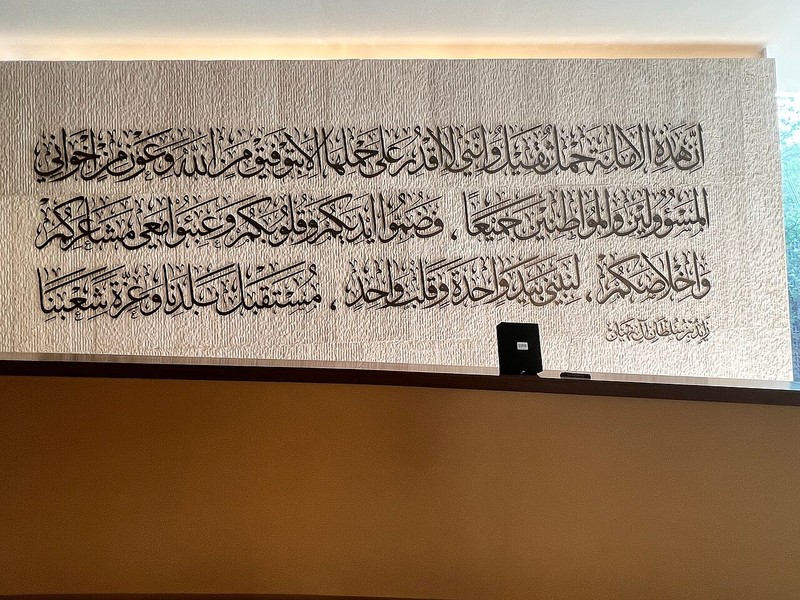 إنّ هذه الأمانة حمل ثقيل وإنني لا أقدر على حملها إلا بتوفيق من الله وعون من إخواني
المسؤولين والمواطنين جميعاً، فضموا أيديكم وقلوبكم وعبئوا معي مشاعركم
وإخلاصكم، لنبني بيد واحدة وقلب واحد، مستقبل بلدنا وعزة شعبنا
زايد بن سلطان آل نهيان